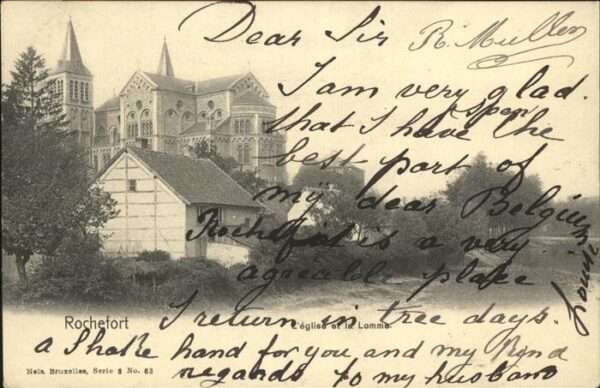 Dear Sir
R. Muller
I am very glad.
that I have spen the
best part of
my dear Belgium
Rochefort is a very
agreable place
Rochefort
L'église et la Lomme
I return in tree days.
a Shake hand for you and my Kind
regards to my husband
Louise
Nels, Bruxelles, Serie 8 No. 63